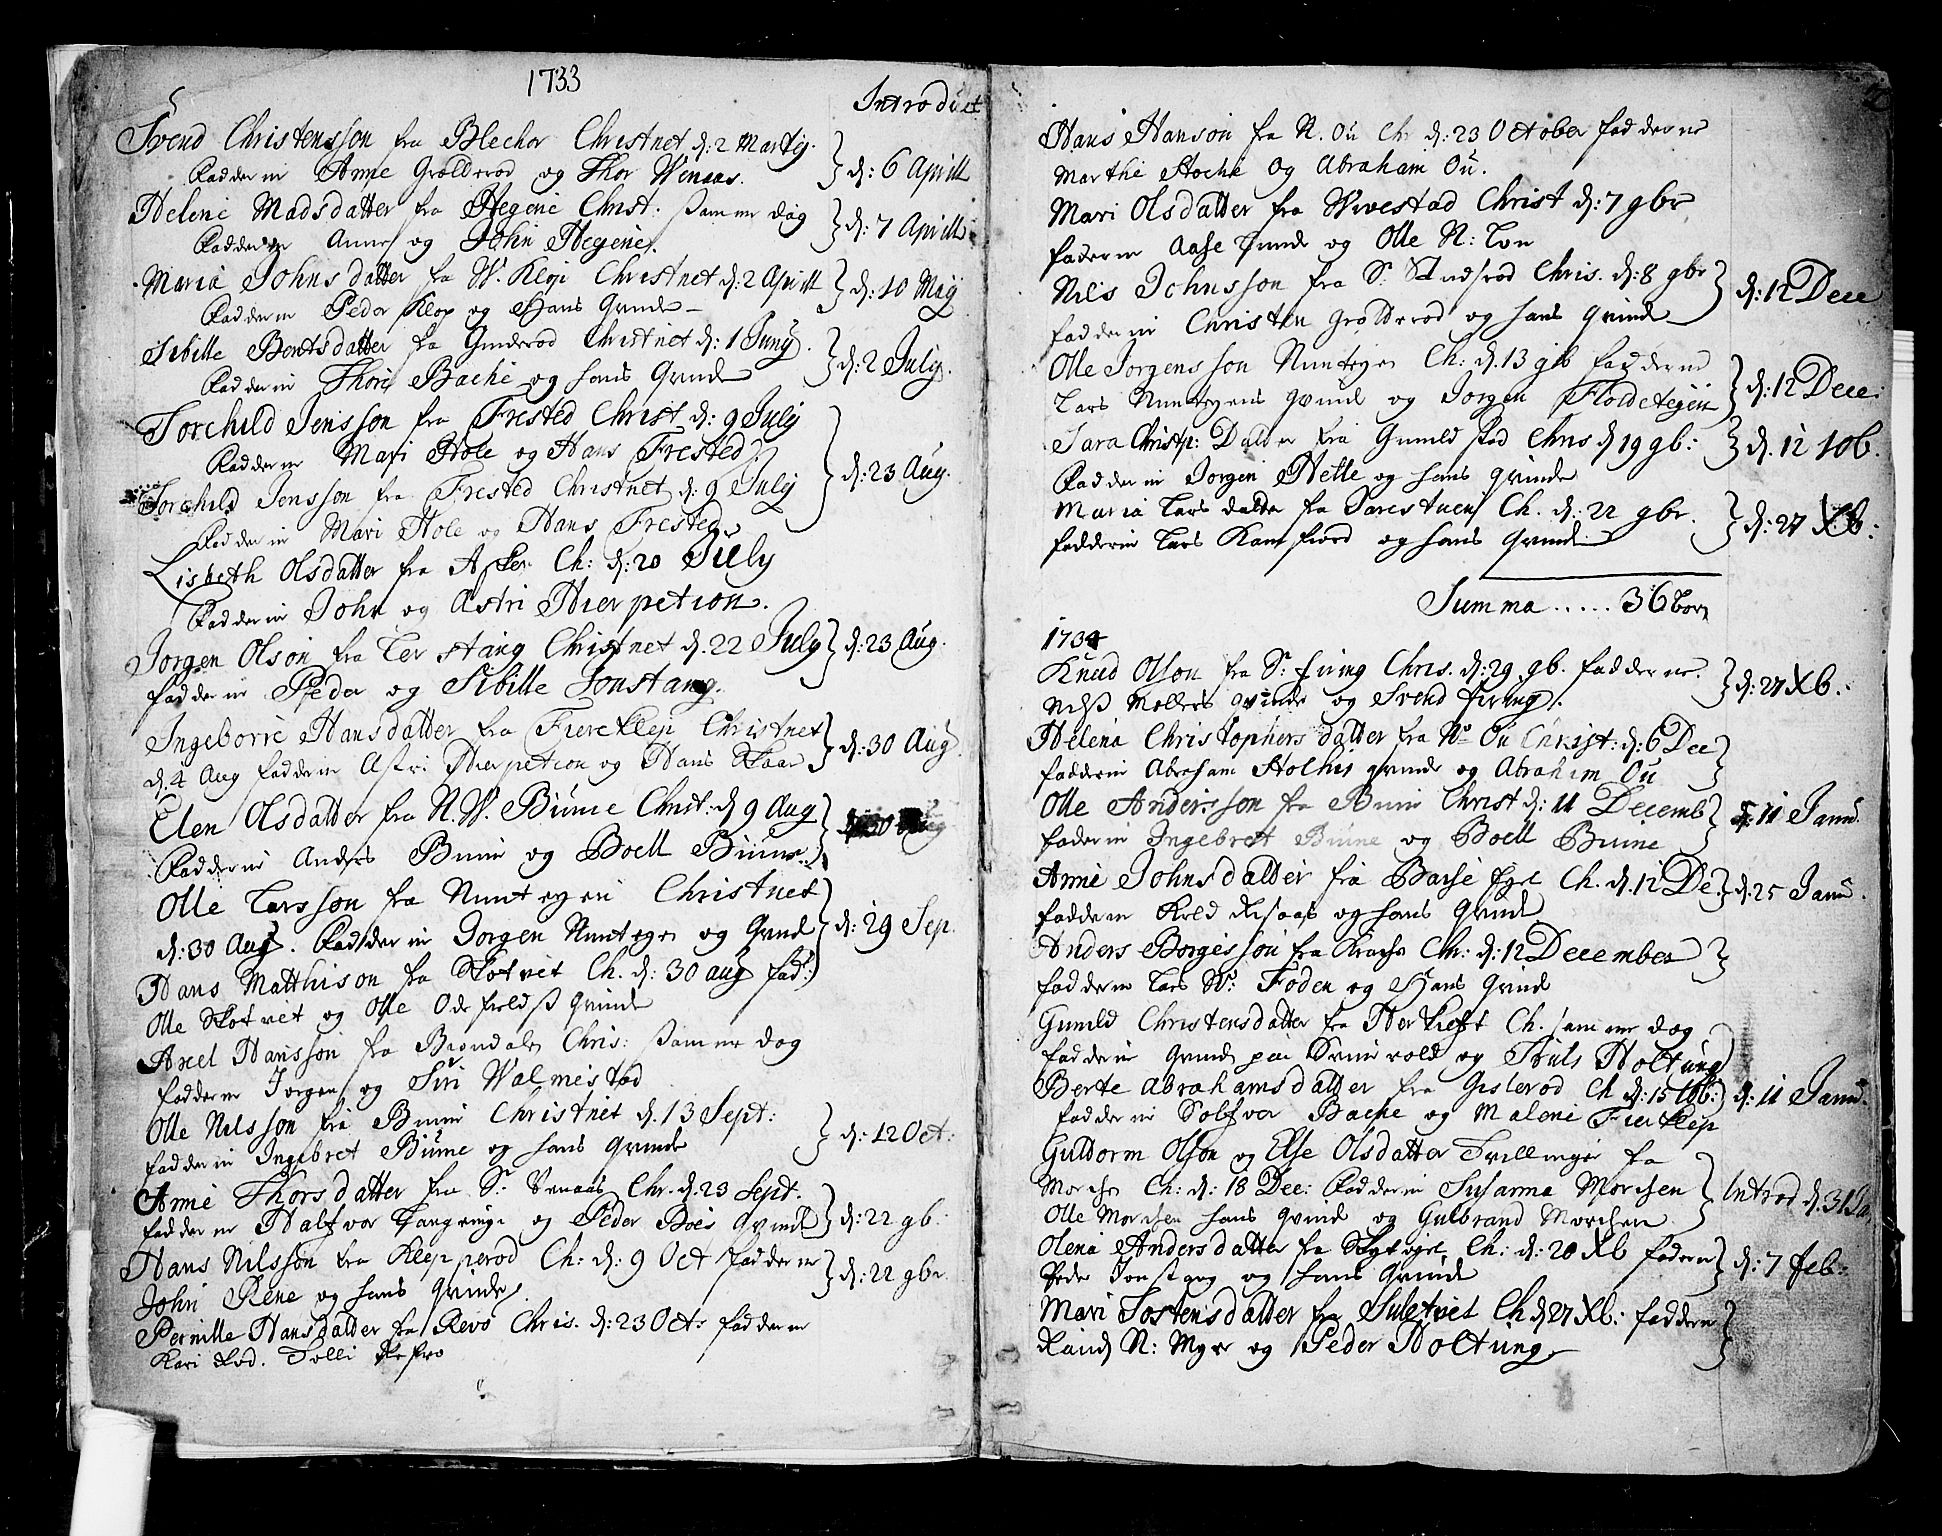 1733
Introduct
Svend Christensson fra Blechor Christnet d: 2 Martij. } d: 6 Aprill
Fadderne Anne Grolderod og Thor Wenaas.
Helene Madsdatter fra Hegene Christ: samme dag } d: 7 Aprill
Fadderne Anne og John Hegene.
Maria Johnsdatter fra W. Klopi Christnet d: 2 Aprill } d: 10 Maij
Fadderne Peder Klop og Hans Qvinde
Sibille Bentsdatter fra Gunderod Christnet d: 1 Junij. } d: 2 July.
Fadderne Thore Bache og hans Qvinde
Torchild Jensson fra Frested Christ d: 9 July
Fadderne Mari Hole og Hans Frested } d: 23 Aug.
Torchild Jensson fra Frested Christnet d: 9 July
Fadderne Mari Hole og Hans Frested
Lisbeth Olsdatter fra Asker Ch: d: 20 July
Fadderne John og Astri Hierpetion.
Jorgen Olson fra Ler stang Christnet d. 22 July } d: 23 Aug.
Fadderne Peder og Sibille Jonstang.
Ingeborre Hansdatter fra Fiereklep Christnet
d. 4 Aug fadderne Astri Hierpetion og Hans Skaar } d: 30 Aug
Elen Olsdatter fra N. W. Bune Christ: d 9 Aug } d 30 Aug
Fadderne Anders Bune og Boell Biune.
Olle Larsson fra Nuntegen Christnet
d: 30 Aug. Fadderne Jorgen Nuntegen og Qvind } d: 29 Sep.
Hans Matthison fra Skotvet Ch. d: 30 aug fad:
Olle Skotvet og Olle Odefieldss Qvinde
Axel Hansson fra Barndalen Chris: samme dag
fadderne Jorgen og Siri Walmestad
Olle Nilsson fra Bune Christnet d. 13 Sept: } d: 12 Oct:
fadderne Ingebret Biune og hans Qvinde
Anne Thorsdatter fra S: Venaas Chr. d. 23 Sept. } d: 22 gb:
fadderne Halfvor Tangenge og Peder Boes Qvinde
Hans Nilsson fra Klepperod Ch: d: 9 Oct fadderne } d: 22 gbr
John Rene og hans Qvinde.
Pernille Hansdatter fra Revo Chris. d: 23 Oct: fadderne
Kari Rod. Tolli
Hans Hanson fra N. Ou Ch d: 23 October fadderne
Marthe Hoche og Abraham Ou.
Mari Olsdatter fra Wivestad Christ d: 7 gbr
faderne Aase Lunde og Olle N: Lon
Nils Johnsson fra S: Chris. d: 8 gbr } d: 12 Dece
fadderne Christen Grolderod og hans Qvinde
Olle Jorgensson Nuntegen Ch: d. 13 gb fadderne
Lars Nuntegens Qvinde og Jorgen Floldetegen } d: 12 Dece:
Sara Christp: Datter fra Gunildstad Chris d 19 gb: } d. 12 10b.
Fadderne Jorgen Helle og hans Qvinde
Maria Lars datter fra Sarestuen Ch. d: 22 gbr. } d: 27 Xb:
fadderne Lars Kamfiord og hans Qvinde
Summa ..... 36 born
1734
Knud Olson fra S: furing Chris. d: 29 gb. fadderne. } d: 27 Xb.
Nilss Mollers Qvinde og Svend furing.
Helena Christophers datter fra No Ou Christ: d: 6 Dec
fadderne Abraham Holhis qvinde og Abraham Ou
Olle Andersson fra Bune Christ d: 11 Decemb } d: 11 Janu.
faderne Ingebret Biune og Boell Bruine
Anne Johnsdatter fra Barse Ch. d. 12 De. } d: 25 Janu.
fadderne Keld og hans Qvinde
Anders Borgesson fra Krachs Ch: d: 12 December }
fadderne Lars W: Foden og Hans Qvind
Gunild Christensdatter fra Ch. samme dag
fadderne Qvinden paa og Truls Holtung
Berte Abrahamsdatter fra Gisterod Ch d: 15 10b: } d: 11 Janu.
fadderne Solfvor Bache og Malene Fierklep
Guldorm Olson og Else Olsdatter Tvillinger fra
Morchen Ch: d: 18 Dec: Fadderne Susanna Morchen } Introd d. 31 Ja
Olle Morchen hans Qvinde og Gulbrand Morchen
Olena Andersdatter fra Ch: d: 20 Xb fadderne } d: 7 feb:
Peder Jonstang og hans Qvinde
Mari Tostensdatter fra Suletvet Ch d 27 Xb: faddern }
Rand N: Myre og Peder Holtung